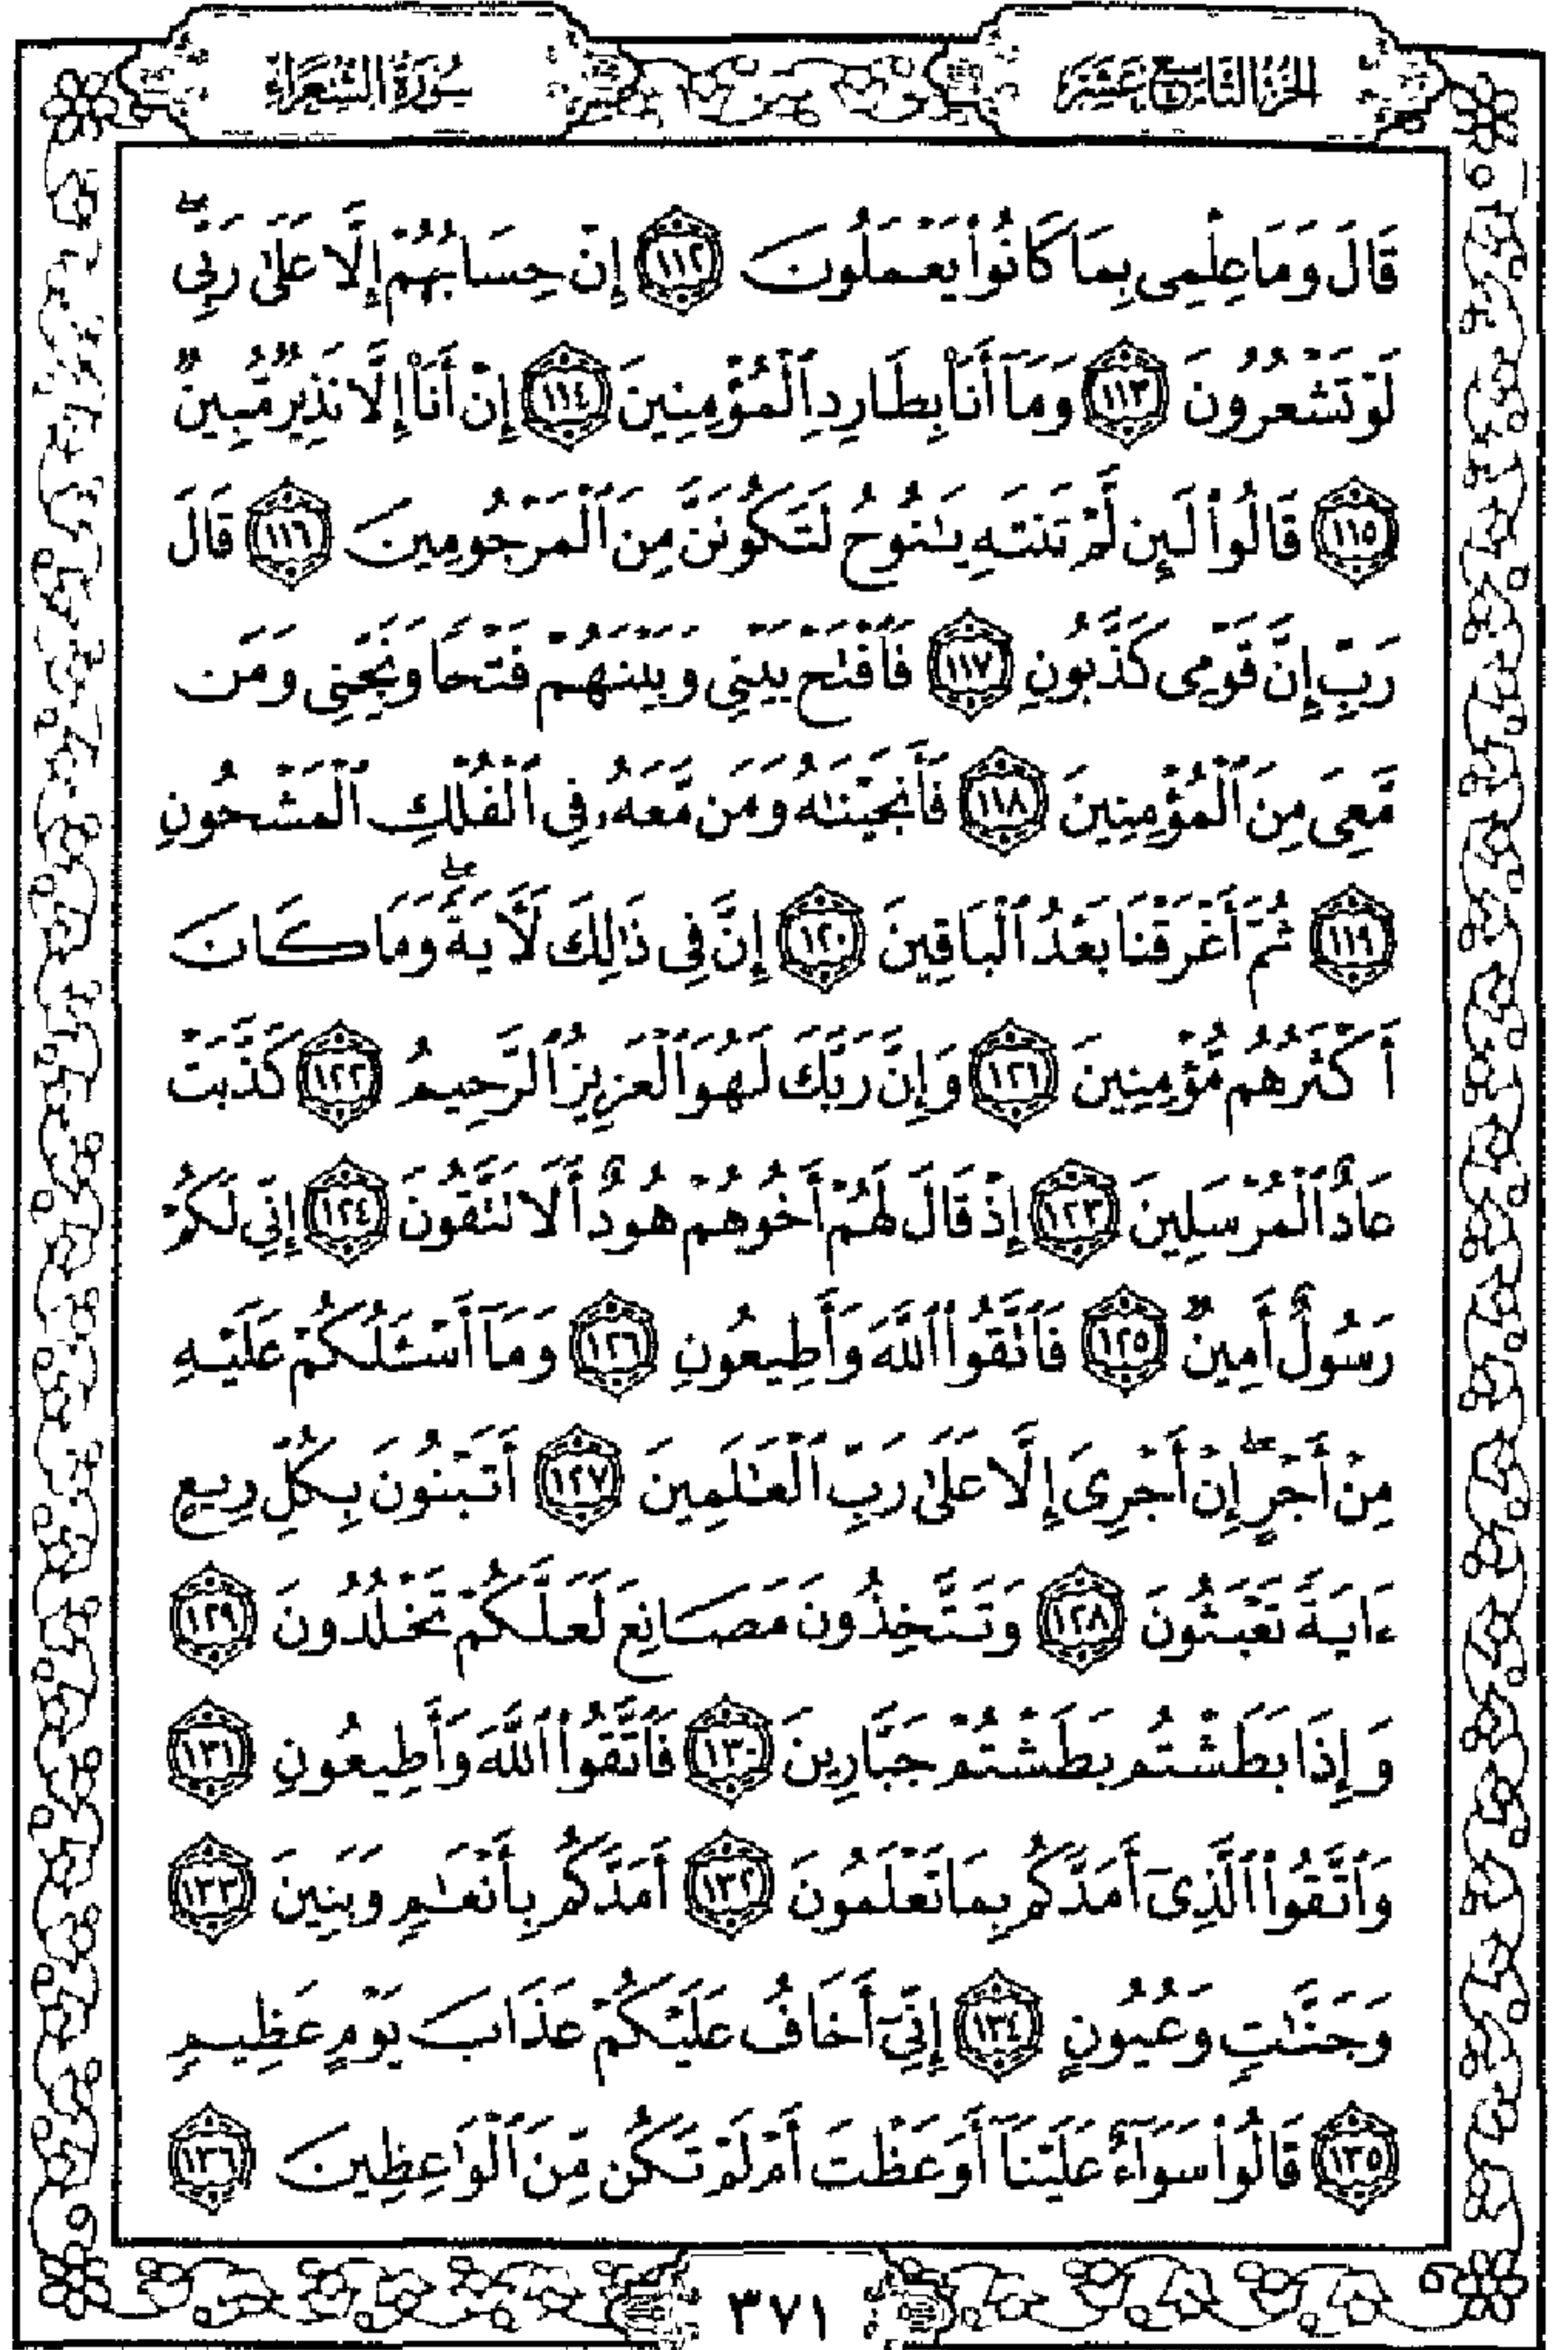 الجزء التاسع عشر
سورة الشعراء
قَالَ وَمَا عِلْمِى بِمَا كَانُوا۟ يَعْمَلُونَ ﴿١١٢﴾ إِنْ حِسَابُهُمْ إِلَّا عَلَىٰ رَبِّى ۖ
لَوْ تَشْعُرُونَ ﴿١١٣﴾ وَمَآ أَنَا۠ بِطَارِدِ ٱلْمُؤْمِنِينَ ﴿١١٤﴾ إِنْ أَنَا۠ إِلَّا نَذِيرٌ مُّبِينٌ
﴿١١٥﴾ قَالُوا۟ لَئِن لَّمْ تَنتَهِ يَـٰنُوحُ لَتَكُونَنَّ مِنَ ٱلْمَرْجُومِينَ ﴿١١٦﴾ قَالَ
رَبِّ إِنَّ قَوْمِى كَذَّبُونِ ﴿١١٧﴾ فَٱفْتَحْ بَيْنِى وَبَيْنَهُمْ فَتْحًا وَنَجِّنِى وَمَن
مَّعِىَ مِنَ ٱلْمُؤْمِنِينَ ﴿١١٨﴾ فَأَنجَيْنَـٰهُ وَمَن مَّعَهُۥ فِى ٱلْفُلْكِ ٱلْمَشْحُونِ
﴿١١٩﴾ ثُمَّ أَغْرَقْنَا بَعْدُ ٱلْبَاقِينَ ﴿١٢٠﴾ إِنَّ فِى ذَٰلِكَ لَـَٔايَةً ۖ وَمَا كَانَ
أَكْثَرُهُم مُّؤْمِنِينَ ﴿١٢١﴾ وَإِنَّ رَبَّكَ لَهُوَ ٱلْعَزِيزُ ٱلرَّحِيمُ ﴿١٢٢﴾ كَذَّبَتْ
عَادٌ ٱلْمُرْسَلِينَ ﴿١٢٣﴾ إِذْ قَالَ لَهُمْ أَخُوهُمْ هُودٌ أَلَا تَتَّقُونَ ﴿١٢٤﴾ إِنِّى لَكُمْ
رَسُولٌ أَمِينٌ ﴿١٢٥﴾ فَٱتَّقُوا۟ ٱللَّهَ وَأَطِيعُونِ ﴿١٢٦﴾ وَمَآ أَسْـَٔلُكُمْ عَلَيْهِ
مِنْ أَجْرٍ ۖ إِنْ أَجْرِىَ إِلَّا عَلَىٰ رَبِّ ٱلْعَـٰلَمِينَ ﴿١٢٧﴾ أَتَبْنُونَ بِكُلِّ رِيعٍ
ءَايَةً تَعْبَثُونَ ﴿١٢٨﴾ وَتَتَّخِذُونَ مَصَانِعَ لَعَلَّكُمْ تَخْلُدُونَ ﴿١٢٩﴾
وَإِذَا بَطَشْتُم بَطَشْتُمْ جَبَّارِينَ ﴿١٣٠﴾ فَٱتَّقُوا۟ ٱللَّهَ وَأَطِيعُونِ ﴿١٣١﴾
وَٱتَّقُوا۟ ٱلَّذِىٓ أَمَدَّكُم بِمَا تَعْلَمُونَ ﴿١٣٢﴾ أَمَدَّكُم بِأَنْعَـٰمٍ وَبَنِينَ ﴿١٣٣﴾
وَجَنَّـٰتٍ وَعُيُونٍ ﴿١٣٤﴾ إِنِّىٓ أَخَافُ عَلَيْكُمْ عَذَابَ يَوْمٍ عَظِيمٍ
﴿١٣٥﴾ قَالُوا۟ سَوَآءٌ عَلَيْنَآ أَوَعَظْتَ أَمْ لَمْ تَكُن مِّنَ ٱلْوَٰعِظِينَ ﴿١٣٦﴾
٣٧١